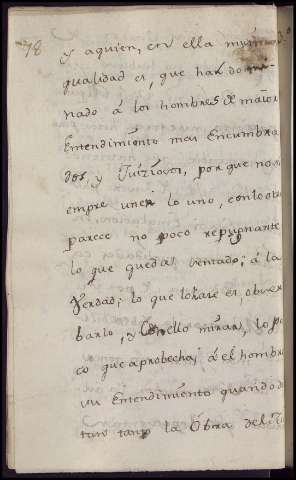 78
y aquien, en ella misma
qualidad es, que han domi-
nado á los hombres de maior
Entendimiento mas Encumbra
dos, y Juiziosos, porque no si
empre unen lo uno, con lo otro
parece no poco repugnante
lo que queda sentado; á la
Verdad; lo que lo hase es obser
barlo, y Con ello miran, lo po
co que aprobecha; á el hombre
su Entendimiento quando
tanto la Obra del